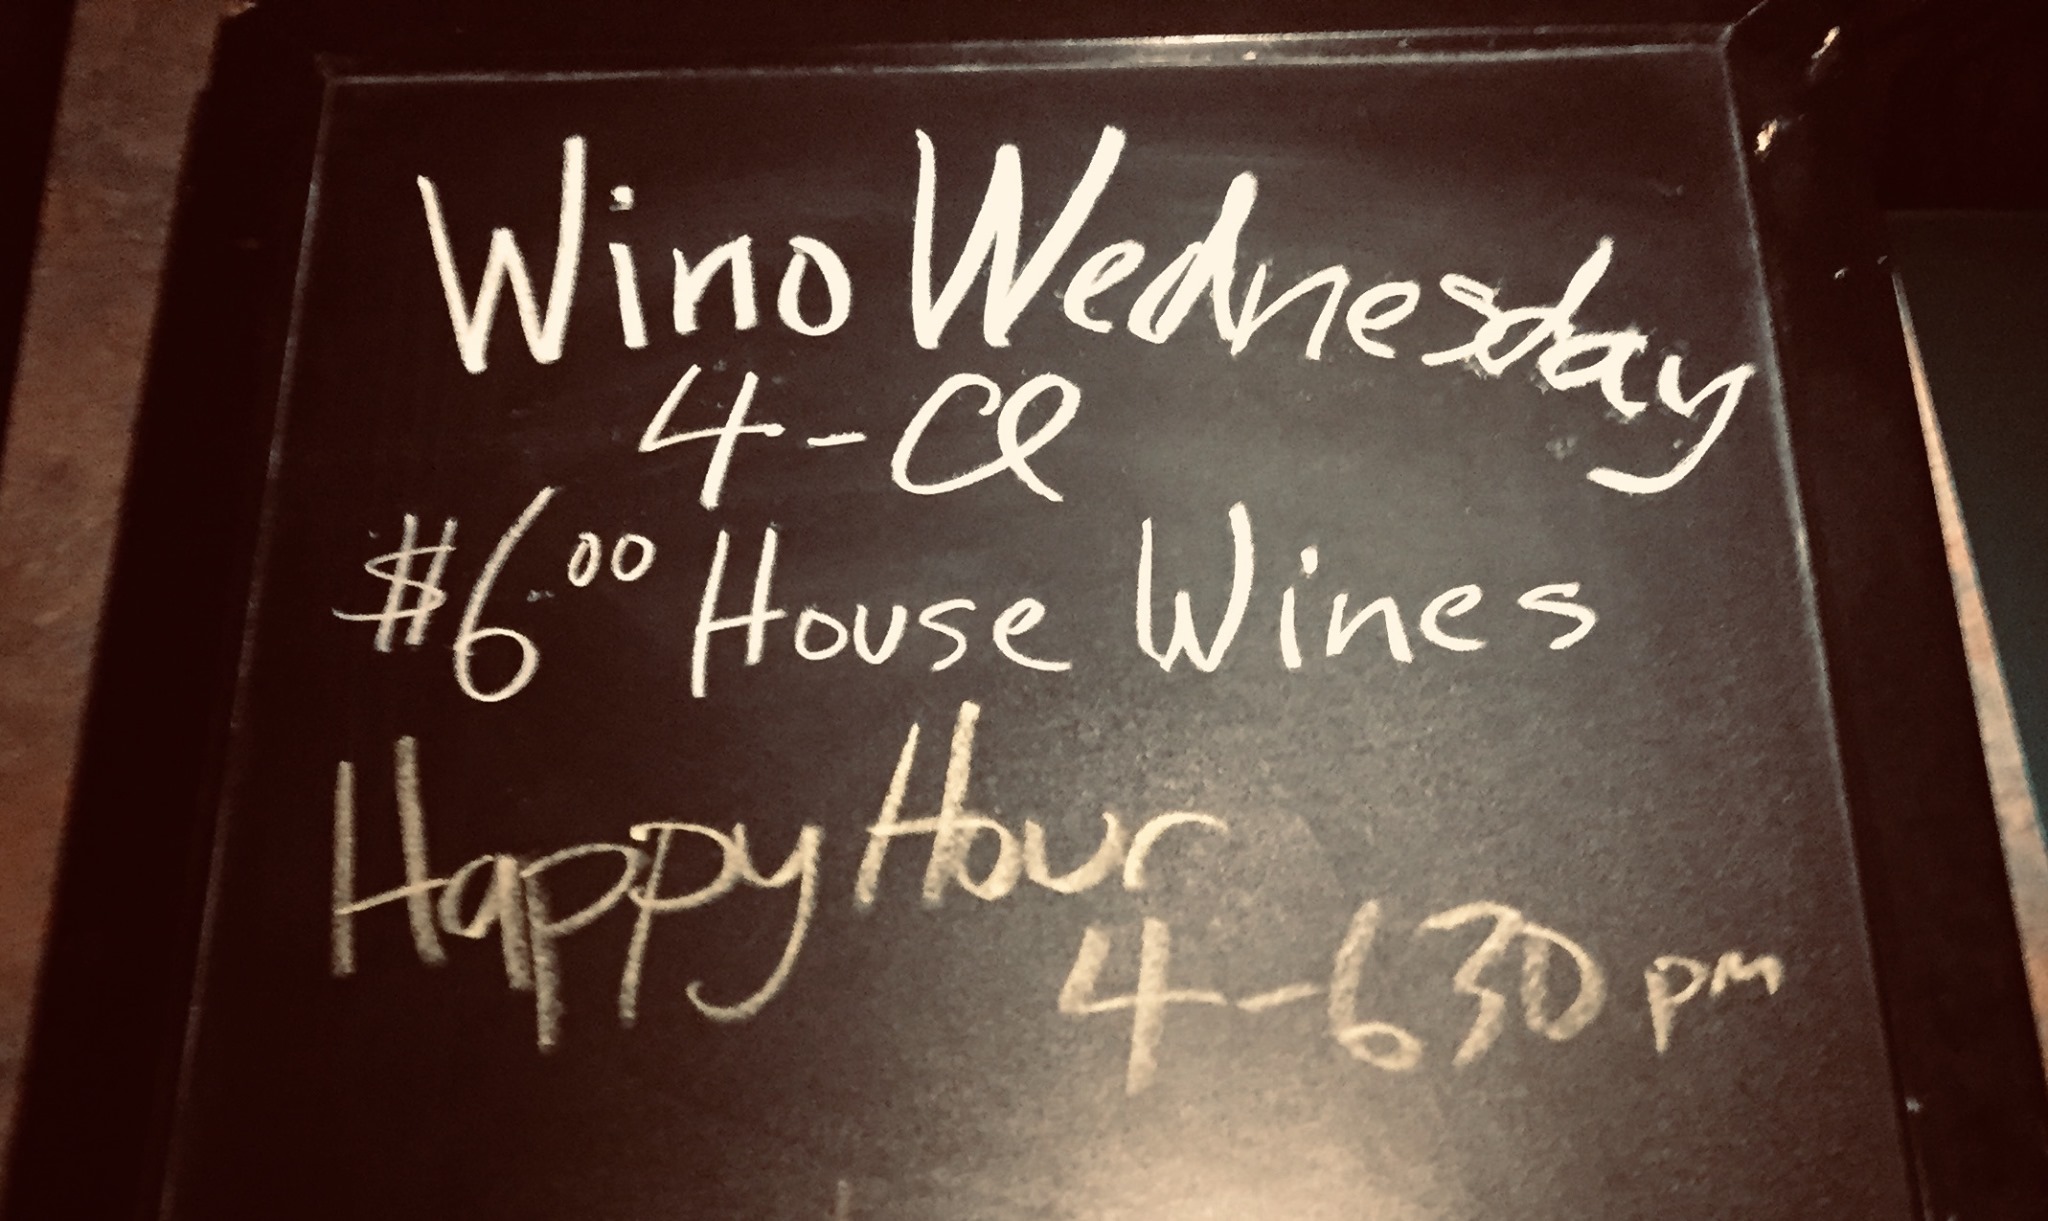 Wino Wednesday
4-Cl
$6.00 House Wines
Happy Hour
4-630 pm